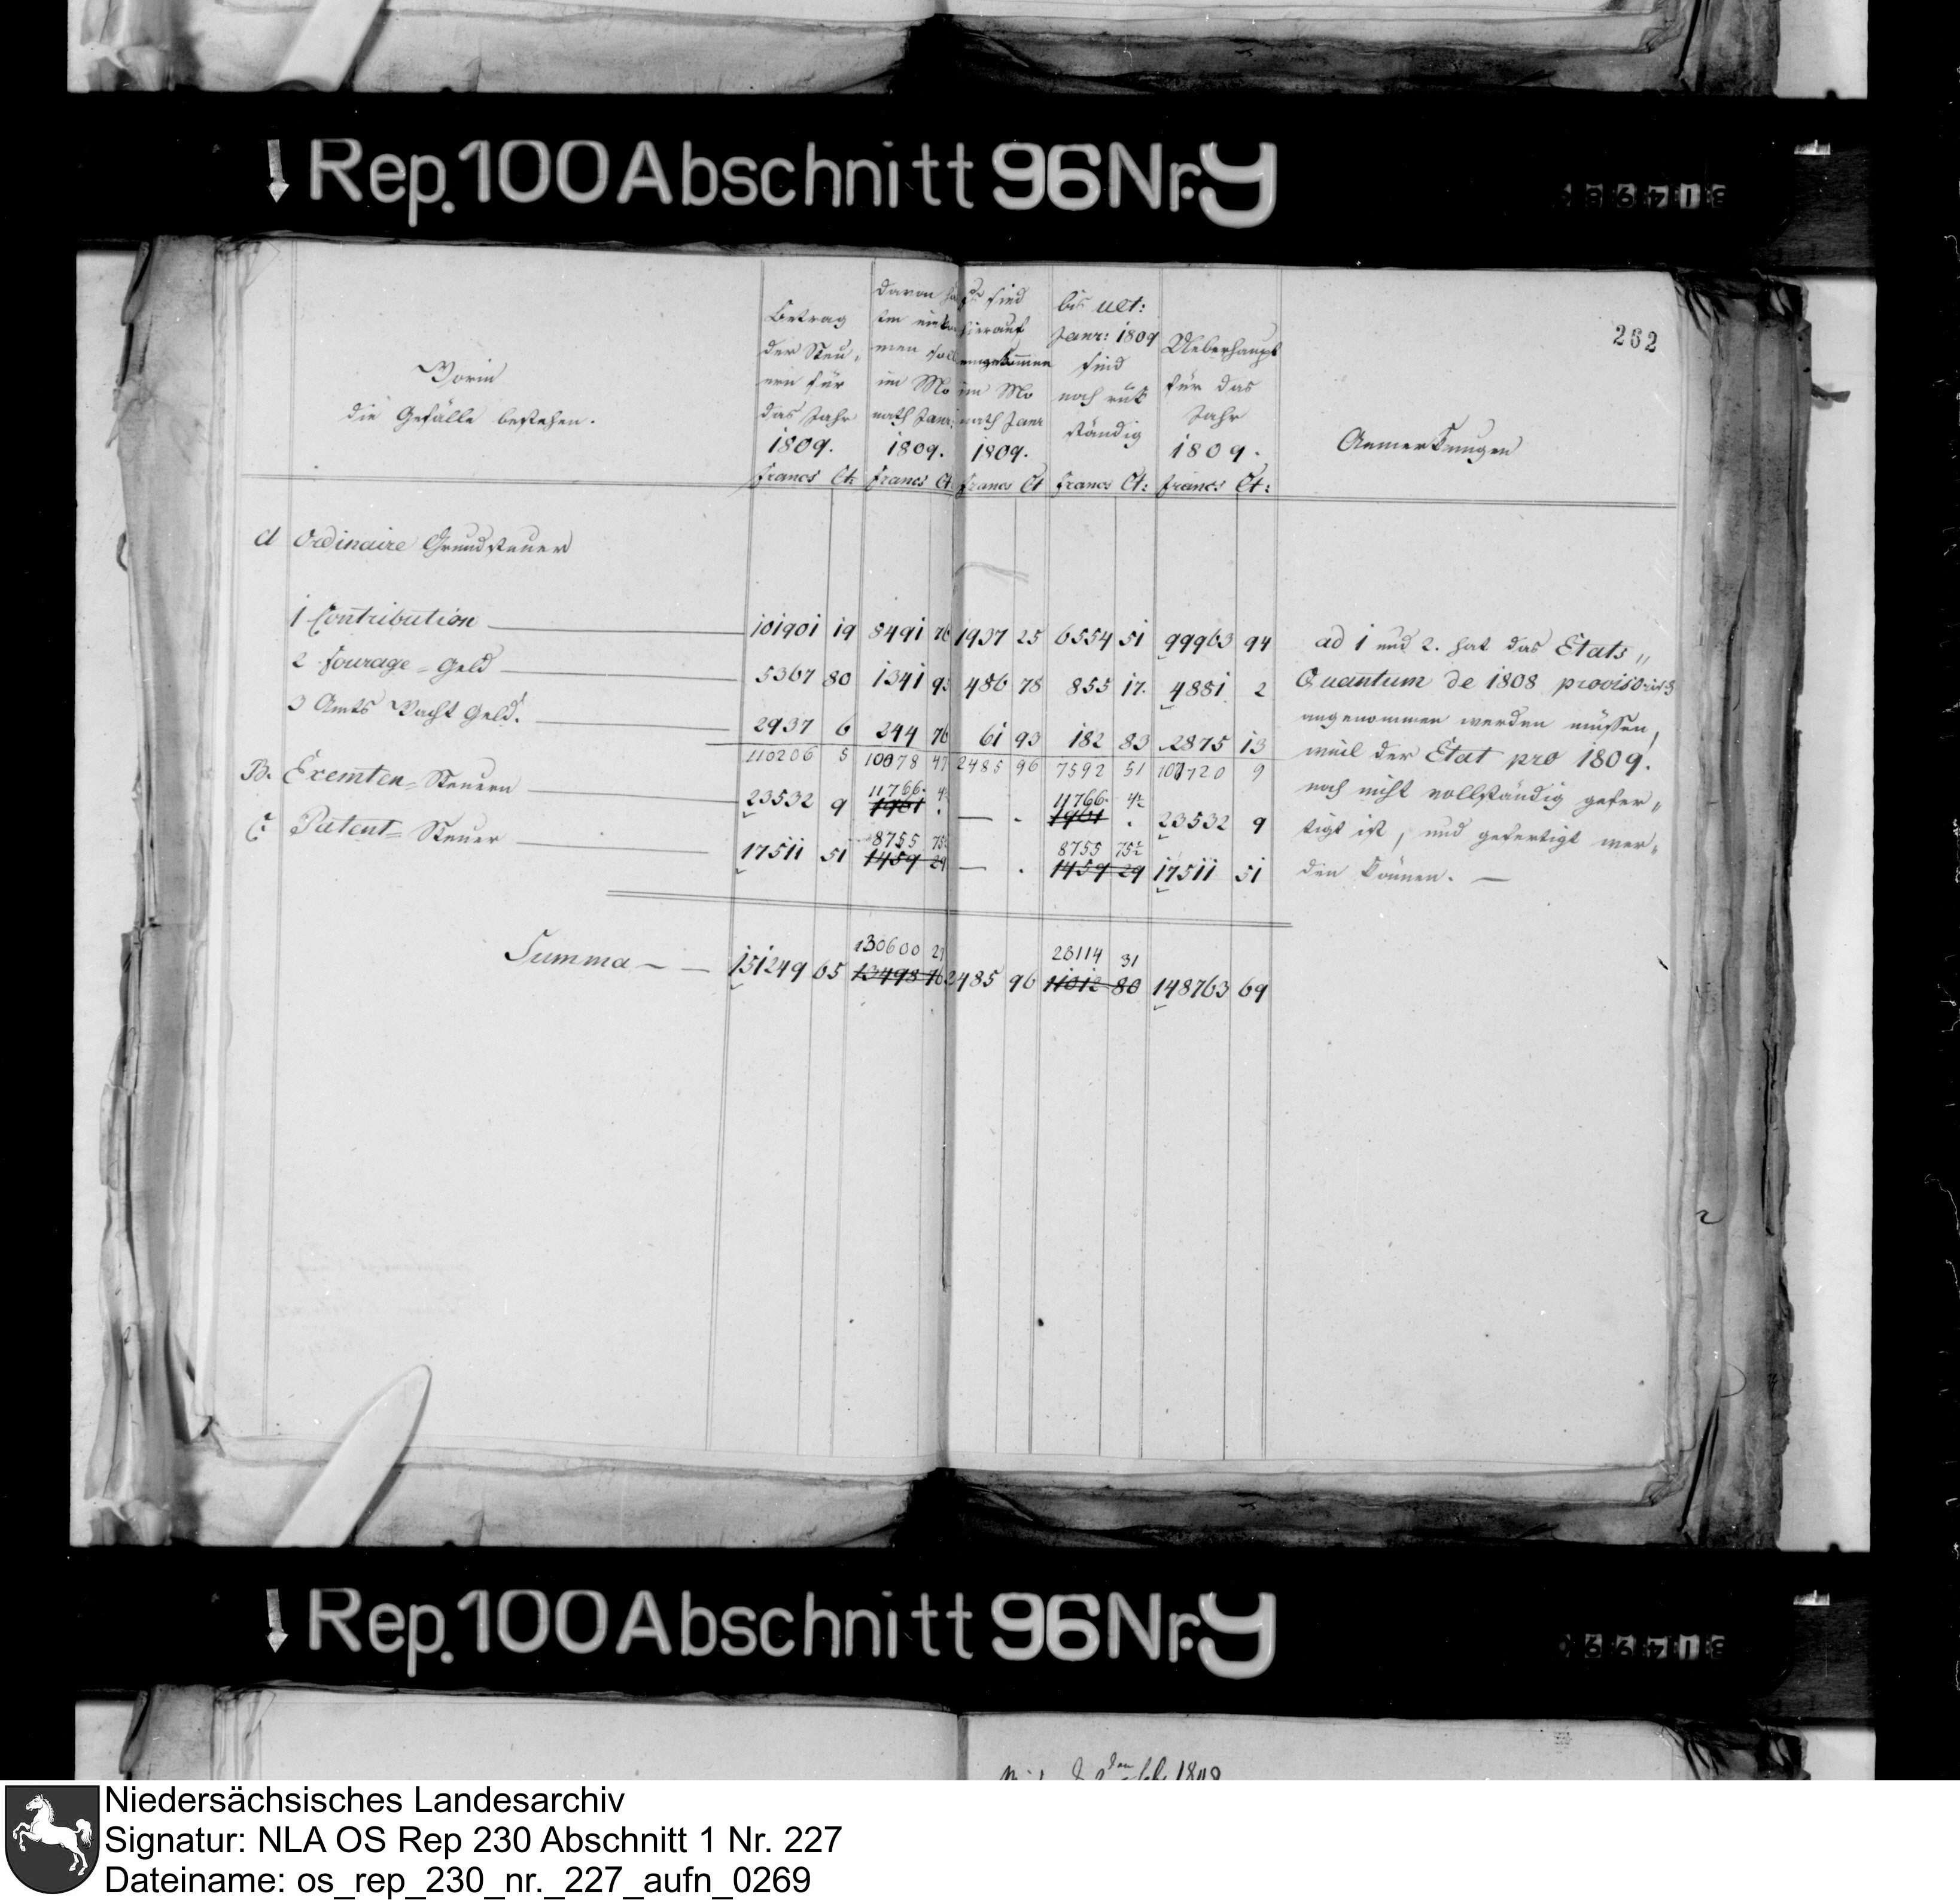 Rep. 100 Abschnitt 96 Nr. 9
262
Worin
die Gefälle bestehen.
Betrag
der Steu,
ern für
das Jahr
1809.
francs Ct:
davon
men soll
im Mo
nath Janr:
1809.
francs Ct
sind
hierauf
eingekommen
im Mo
nath Janr
1809.
francs Ct
bis ult:
Janr: 1809
sind
noch rük
ständig
francs Ct:
Ueberhaupt
für das
Jahr
1809.
francs Ct:
Anmerkungen
A Ordinaire Grundsteuer
1 Contribution 101901 19 8491 76 1937 25 6554 51 99963 94
2 Fourage=Geld 5367 80 1341 95 486 78 855 17. 4881 2
3 Amts Wacht Geld. 2937 6 244 76 61 93 182 83 2875 13
110206 5 10078 47 2485 96 7592 51 107720 9
11766. 4½ 11766. 4½
B. Exemten=Steuern 23532 9 1961 . — . 1961 . 23532 9
8755 75½ 8755 75½
C: Patent=Steuer 17511 51 1459 29 — . 1459 29 17511 51
30600 27 28114 31
Summa — — 151249 65 13498 76 2485 96 11012 80 148763 69
ad 1 und 2. hat das Etats„
Quantum de 1808 provisorisch
angenommen werden müssen,
weil der Etat pro 1809.
noch nicht vollständig gefer„
tigt ist, und gefertigt wer„
den können. —
Rep. 100 Abschnitt 96 Nr. 9
Niedersächsisches Landesarchiv
Signatur: NLA OS Rep 230 Abschnitt 1 Nr. 227
Dateiname: os_rep_230_nr._227_aufn_0269